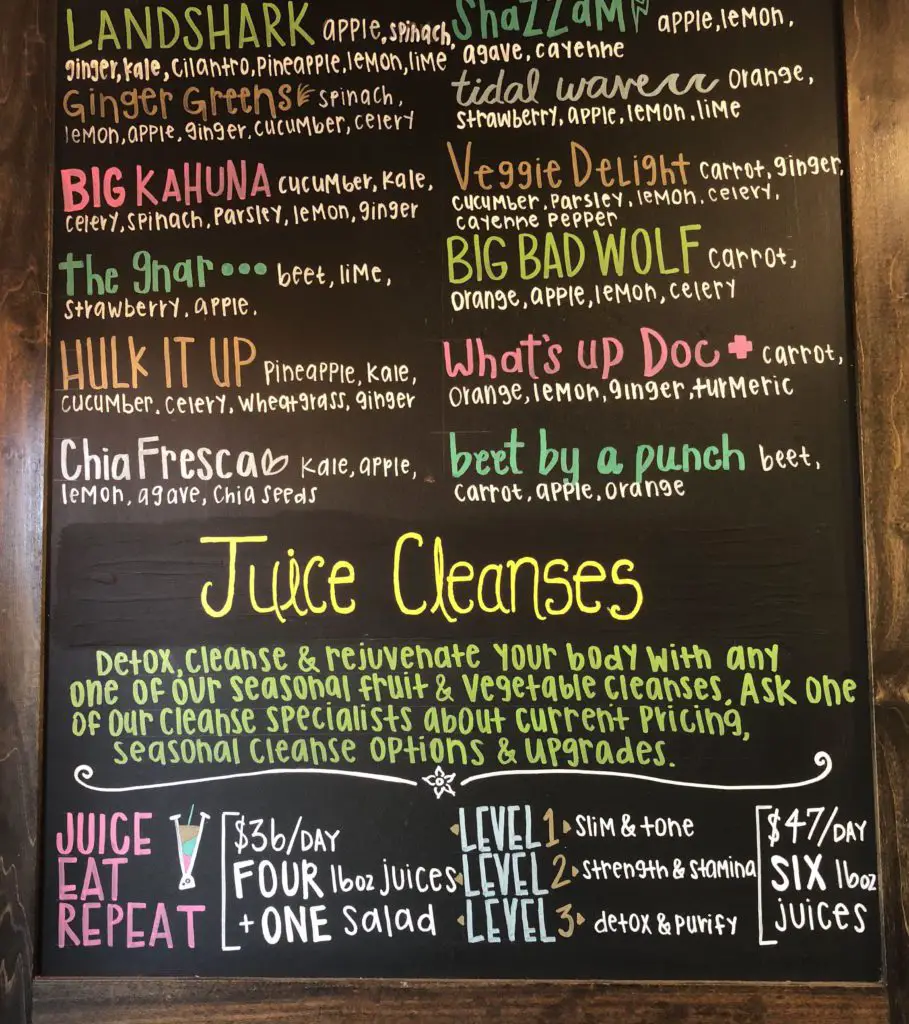 LANDSHARK apple, spinach,
ginger, kale, cilantro, pineapple, lemon, lime
Ginger Greens spinach,
lemon, apple, ginger, cucumber, celery
BIG KAHUNA cucumber, kale,
celery, spinach, parsley, lemon, ginger
the gnar... beet, lime,
strawberry, apple.
HULK IT UP pineapple, kale,
cucumber, celery, wheatgrass, ginger
Chia Fresca kale, apple,
lemon, agave, chia seeds
ShaZZAM apple, lemon,
agave, cayenne
tidal wave orange,
strawberry, apple, lemon, lime
Veggie Delight carrot, ginger,
cucumber, parsley, lemon, celery,
cayenne pepper
BIG BAD WOLF carrot,
orange, apple, lemon, celery
What's up Doc carrot,
orange, lemon, ginger, turmeric
beet by a punch beet,
carrot, apple, orange
Juice Cleanses
Detox, cleanse & rejuvenate your body with any
one of our seasonal fruit & vegetable cleanses. Ask one
of our cleanse specialists about current pricing,
seasonal cleanse options & upgrades.
JUICE
EAT
REPEAT
$36/DAY
FOUR 16oz juices
+ ONE Salad
LEVEL 1 Slim & tone
LEVEL 2 Strength & Stamina
LEVEL 3 detox & purify
$47/DAY
SIX 16oz
juices